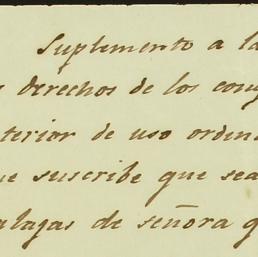 Suplemento a la
derechos de los cony
terior de uso ordena
ue suscribe que sea
alajas de señora q